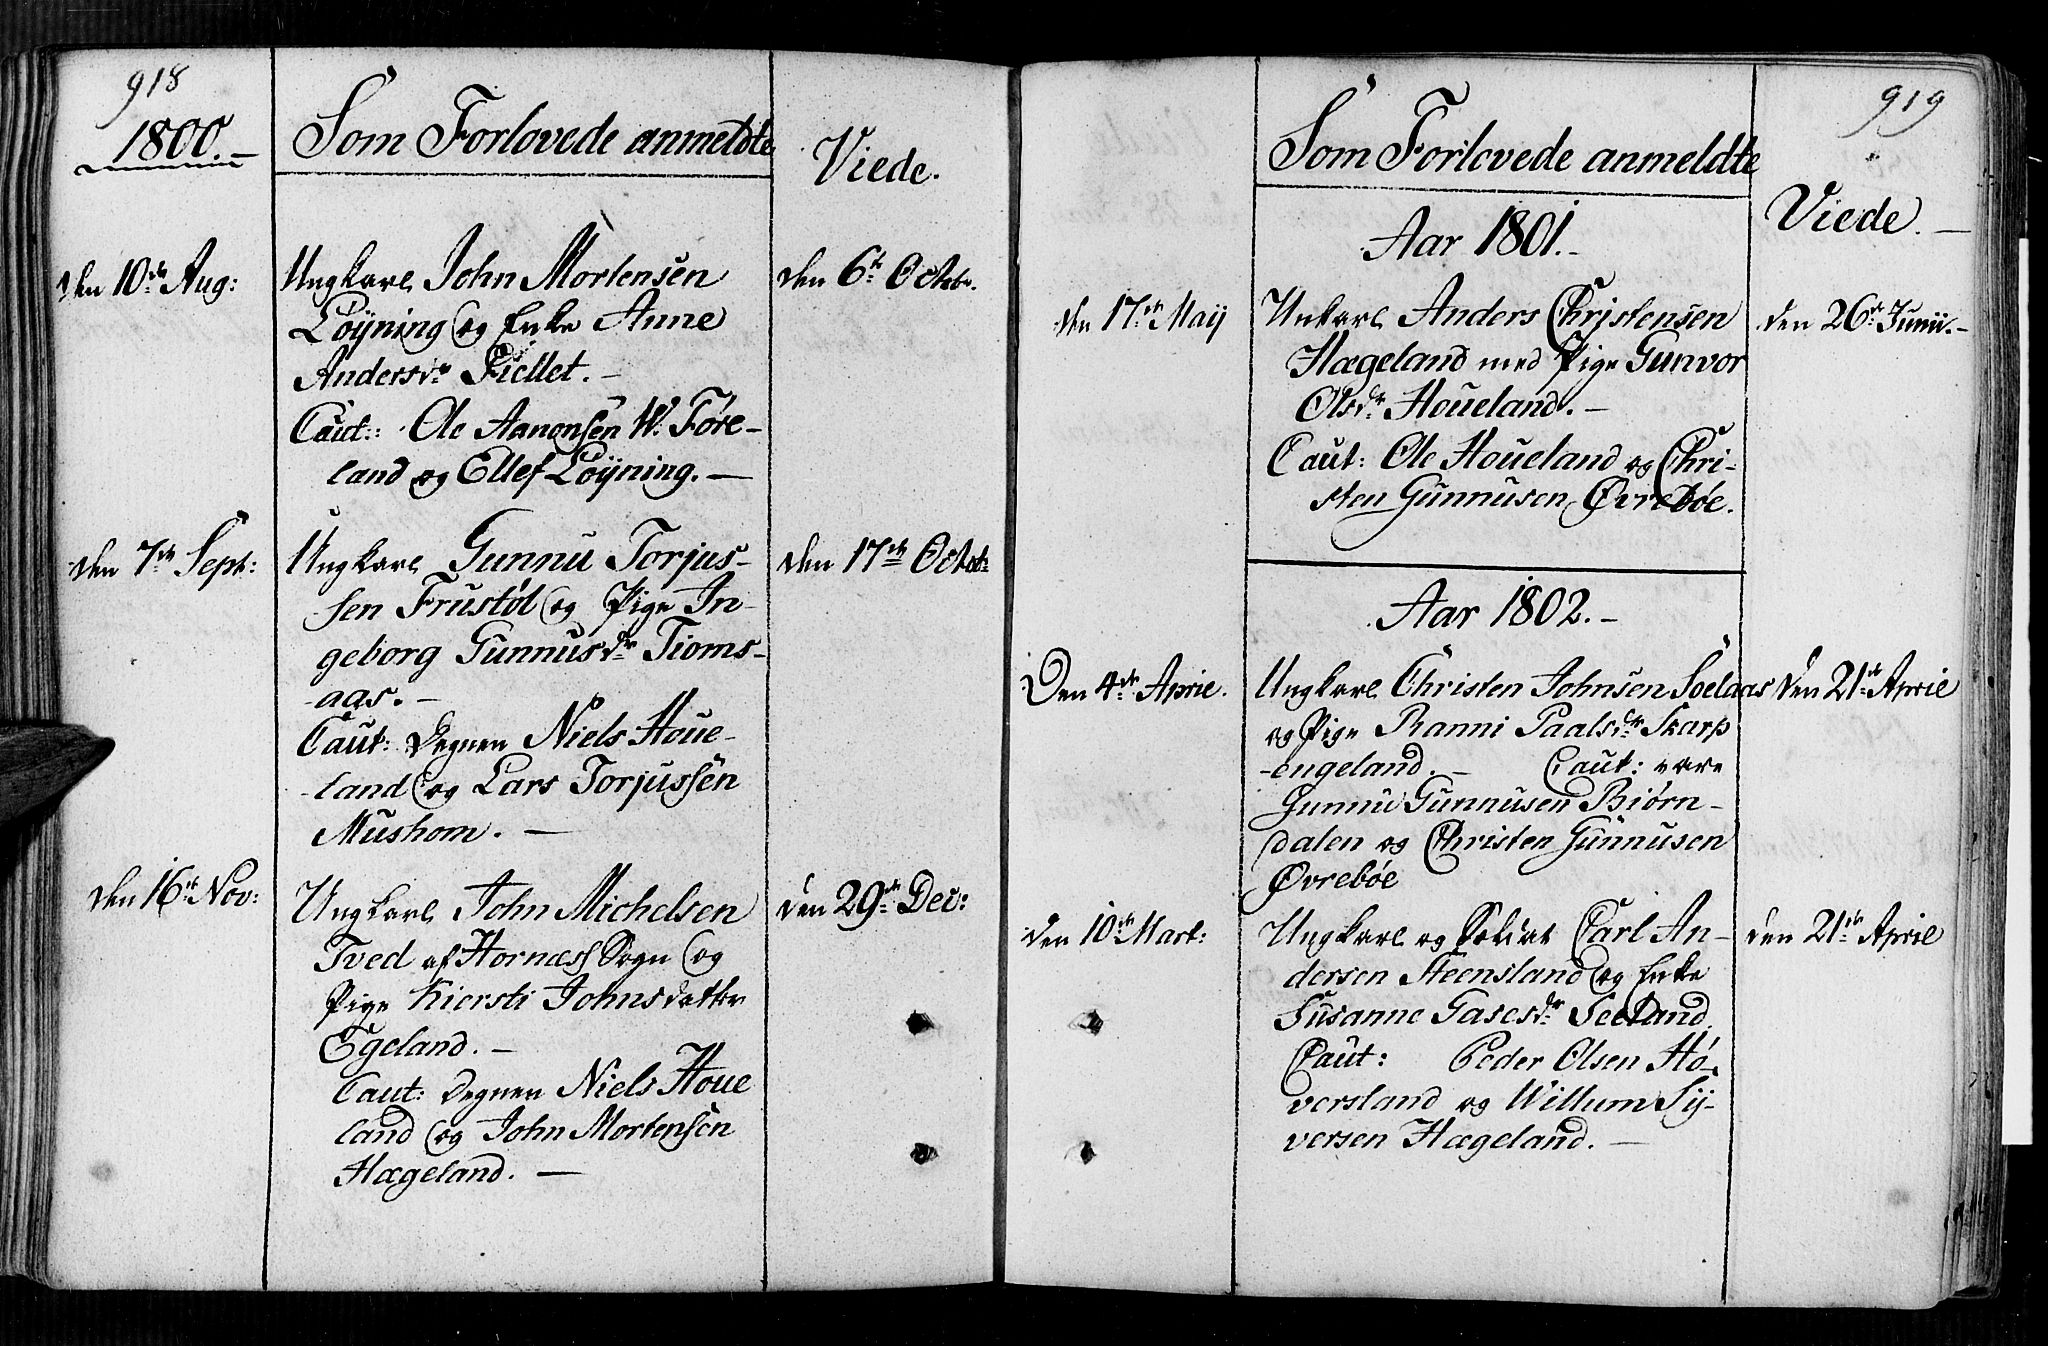 918
1800.
Som Forlovede anmeldte
Viede.
den 10de Aug:
Ungkarl John Mortensen
Løyning og Enke Anne
Andersdr Fiellet. —
Caut: Ole Aanonsen W. Føre-
land og Ellef Løyning. —
den 6te Octobr.
den 7de Sept:
Ungkarl Gunnu Torjus-
sen Frustøl og Pige In-
geborg Gunnusdr Tioms-
aas. —
Caut: Degnen Niels Houe-
land og Lars Torjussen
Mushom. —
den 17de Octob:
den 16te Nov:
Ungkarl John Michelsen
Tved af Hornæss Sogn og
Pige Kiersti Johnsdatter
Egeland. —
Caut: Degnen Niels Houe
land og John Mortensen
Hægeland. —
den 29de Dec:
919
Som Forlovede anmeldte
Viede. —
Aar 1801. —
den 17de Maij
Unkarl Anders Christensen
Hægeland med Pige Gunvor
Olsdr Houeland. —
Caut: Ole Houeland og Chri-
sten Gunnusen Øvrebøe.
den 26de Junii. —
Aar 1802. —
Den 4de Aprie.
Ungkarl Christen Johnsen Soelaas
og Pige Ranni Paalsdr Skarp
-engeland. — Caut: vare
Gunnu Gunnusen Biørn-
dalen og Christen Gunnusen
Øvrebøe
den 21de Aprie
den 10de Mart:
Ungkarl og Soldat Carl An-
dersen Steensland og Enke
Susanne Gasesdr Seeland
Caut: Peder Olsen Hø-
versland og Willum Sy-
versen Hægeland. —
den 21de Aprie